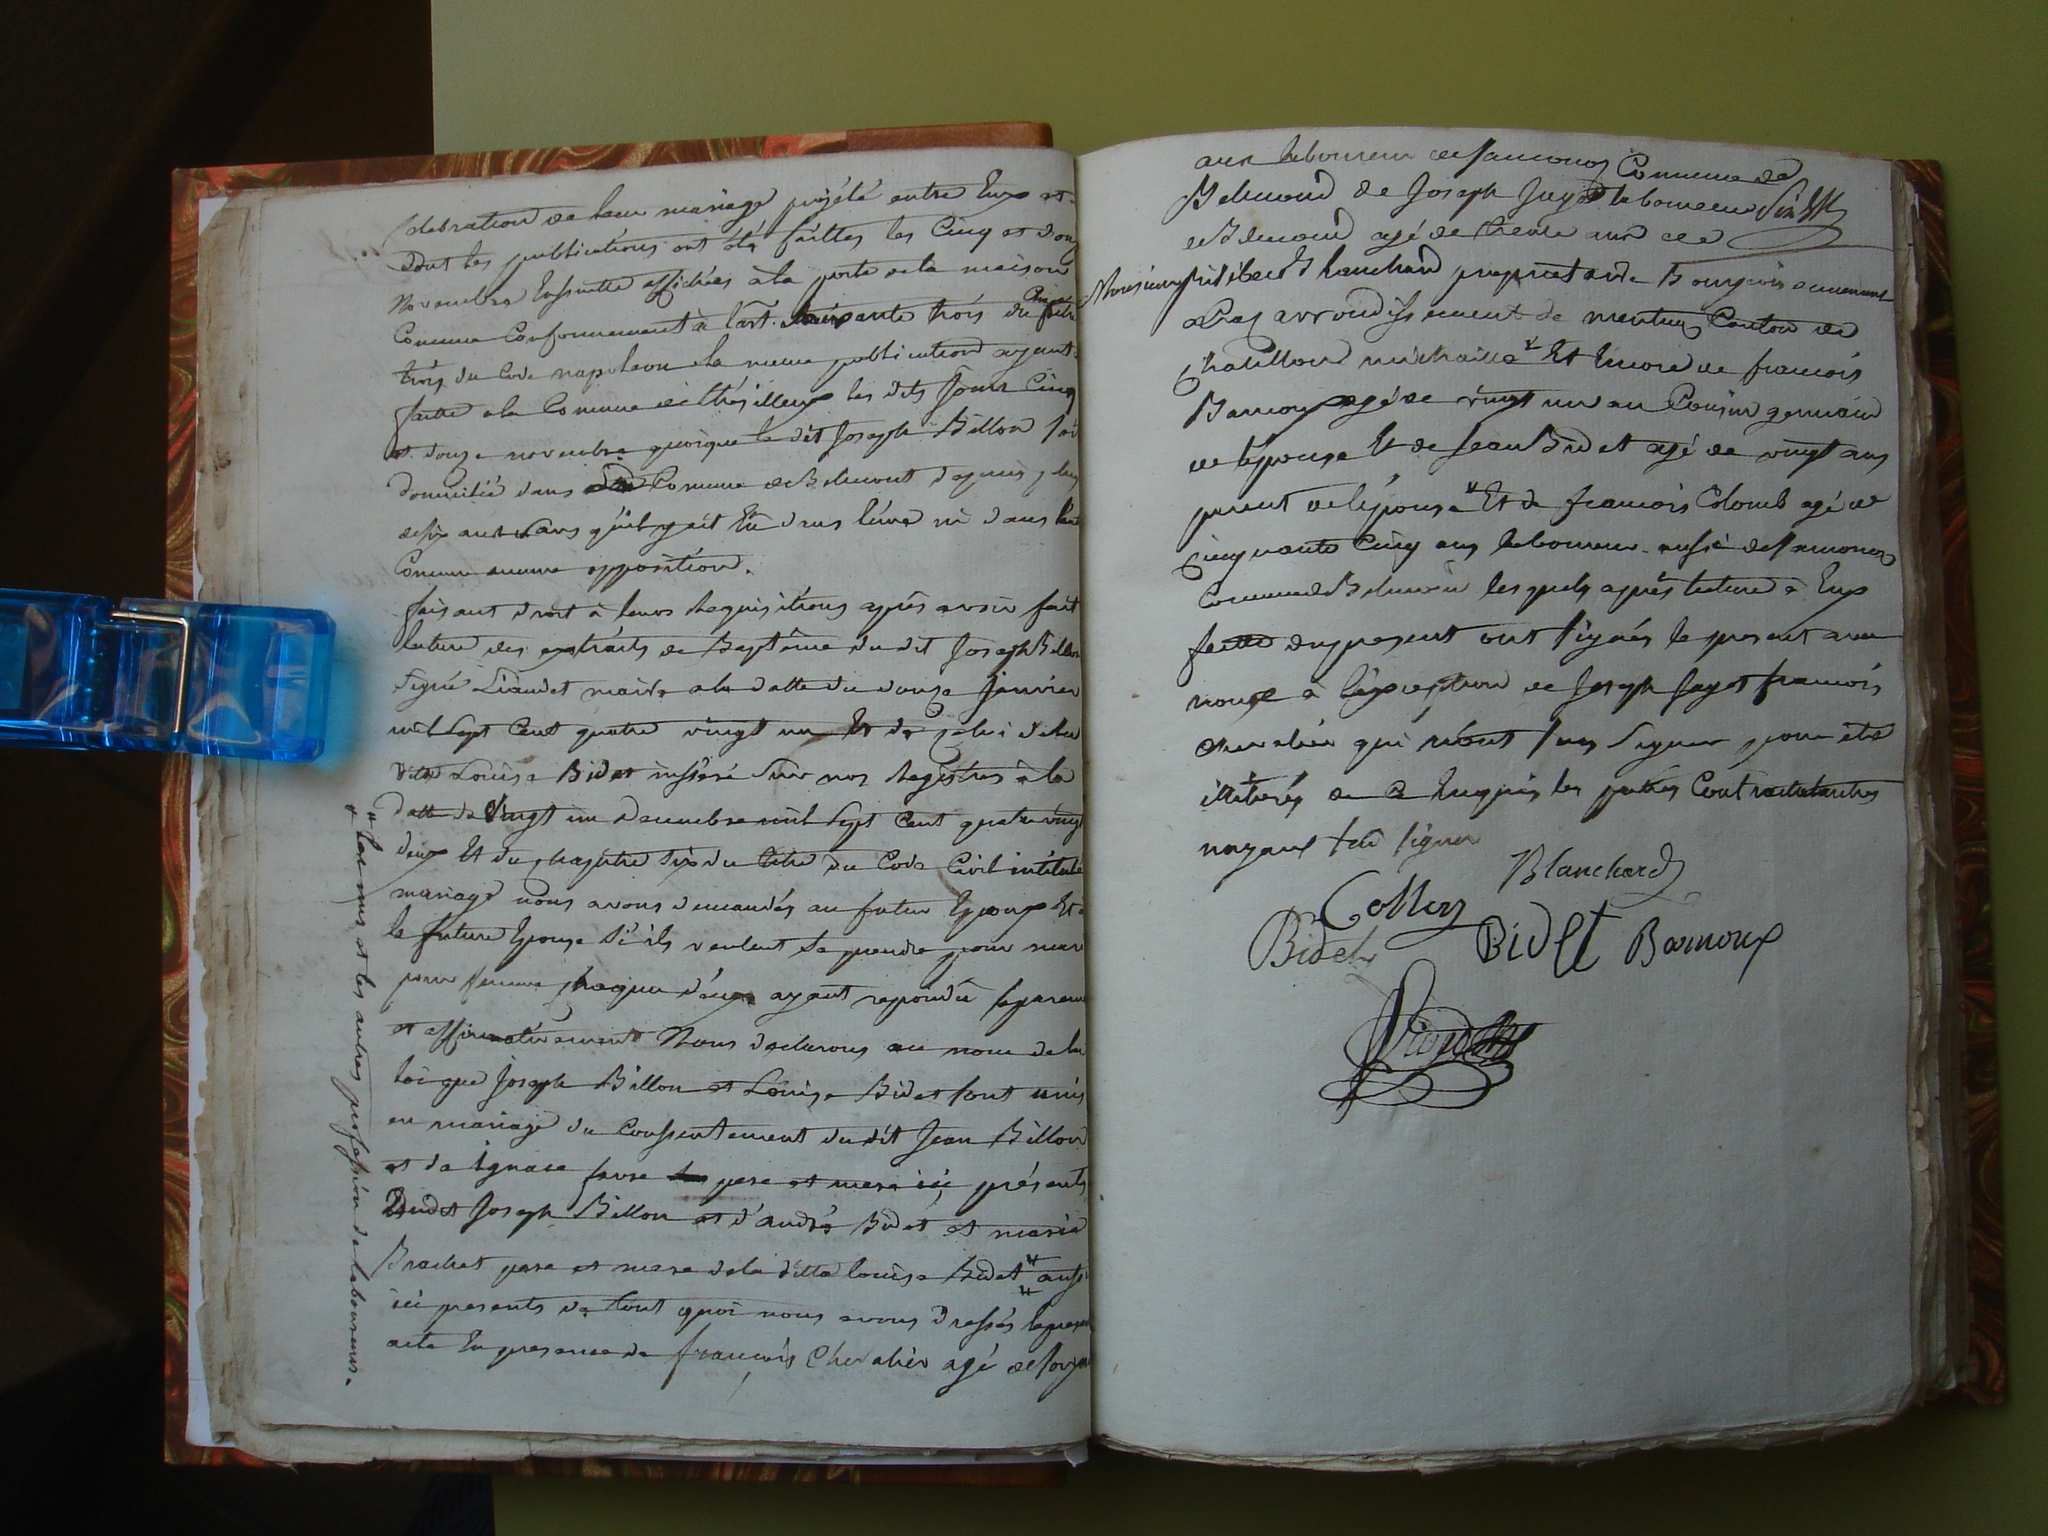 celebration de leur mariage projété entre Eux et
dont les publications ont étés faittes les Cinq et douz
Novembre Ensuitte affichées à la porte de la maison
Comune Conformement à l'art. Soixante trois du
trois du Code napoleon la meme publication ayant
faitte a la Comune de les dits Jours Cinq
et douze novembre quoique le dit Joseph Billon soi
domicilié dans Comune de Belmont depuis plus
de six ans sans qu'il y ait Eû dans l'une ni dans l'aut
Comune aucune opposition.
faisant droit à leurs Requisitions après avoir fait
lecture des extraits de Baptême du dit Joseph Billon
Signé Liaudet maire a la datte du douze Janvier
mil Sept Cent quatre vingt un Et de Celui de la
ditte Louise Bidet insseré Sur nos Registres à la
datte de Vingt un decembre mil Sept Cent quatre vingt
deux Et du chapitre Six du titre du Code Civil intitulé
mariage nous avons demandés au futur Epoux Et a
la future Epouse S'ils veulent se prendre pour mari
pour femme chaqun d'eux ayant repondû separem
et affirmativement Nous declarons au nom de la
loi que Joseph Billon et Louise Bidet sont unis
en mariage du Conssentement du dit Jean Billon
et de ignace favre pere et mere ici présents
dudt Joseph Billon et d'andré Bidet et maria
Brachet pere et mere de la ditte louise Bidet aussi
ici presents de tout quoi nous avons dressés le presen
acte En presence de francois Chevalier agé de
les uns et les autres profession de laboureurs.
ans laboureur de Comune de
Belmond de Joseph Jugot laboureur
de Belmond agé de trente ans de
Monsieur philibert Blanchard propriétaire Bourgeois
arrondissement de nantua Canton de
Chatillond michaille Et Encore de francois
Barnoux agé de vingt un an Cousin germain
de lépouse Et de Jean Bidet agé de vingt ans
parent de lépouse Et de francois Colomb agé de
Cinquante Cinq ans laboureur aussi de
Comune de Belmond lesquels après lecture à Eux
faitte du present ont signés le present avec
nous à l'exception de Joseph Jugot francois
chevalier qui n'ont sus Signer pour etre
illitérés de ce Enquis les parties Contractantes
nayant sçu signer
Blanchard
Collez
Bidet Bidet Barnoux